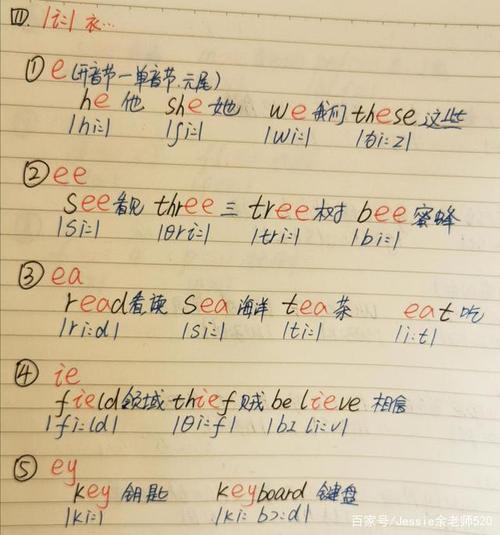 四. |i:| 衣…
① e (开音节一单音节.元尾)
he 他 she 她 we 我们 these 这些
|hi:| |ʃi:| |wi:| |ði:z|
② ee
see 看见 three 三 tree 树 bee 蜜蜂
|si:| |θri:| |tri:| |bi:|
③ ea
read 看读 sea 海洋 tea 茶 eat 吃
|ri:d| |si:| |ti:| |i:t|
④ ie
field 领域 thief 贼 believe 相信
|fi:ld| |θi:f| |bɪ li:v|
⑤ ey
key 钥匙 keyboard 键盘
|ki:| |ki: bɔ:d|
百家号/Jessie余老师520